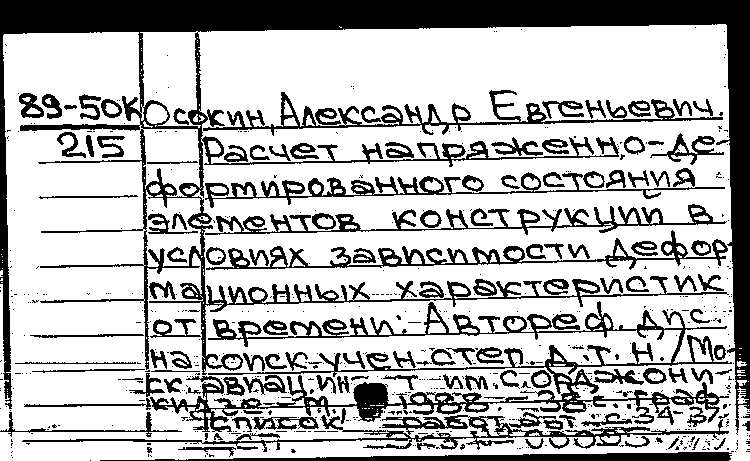 89-50к Осокин, Александр Евгеньевич.
215 Расчет напряженно-де-
формированного состояния
элементов конструкций в
условиях зависимости дефор-
мационных характеристик
от времени: Автореф. дис.
на соиск. учен. степ. д.т.н. / Мо-
ск. авиац. ин-т им. С. Орджони-
кидзе. - М., 1988. - 38 с. : граф.
Список работ авт.: с. 34-37.
ДСП. Экз. №